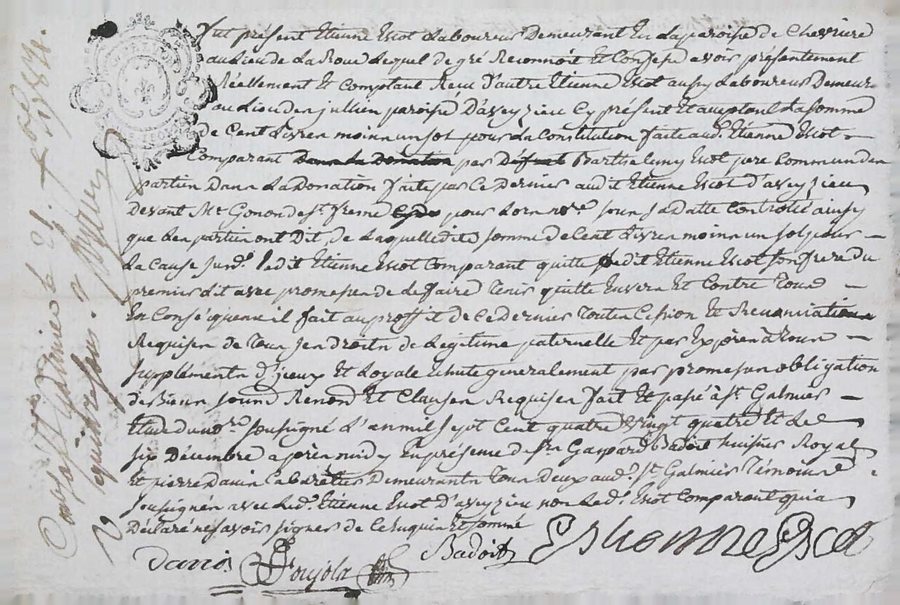 fut présent Etienne Escot Laboureur Demeurant En La paroisse de Chevriere
au Lieu de La Roue Lequel de gré Reconnoit Et Confesse avoir présentement
Réellement Et Comptant Receu D'autre Etienne Escot aussy Laboureur Demeur
au Lieu den jullien paroisse D'aveyzieu Cy présent Et acceptant La somme
de Cent Livres moins un sol pour La Constitution faite aud. Etienne Escot
Comparant par Barthelemy Escot pere Commun des
parties Dans La Donation faite par Ce Dernier audit Etienne Escot d'aveyzieu
devant Me Gonon de st. pour Lors nore. sous Sa Datte Controllé ainsy
que Les parties ont Dit, de Laquelle dite somme de Cent Livres moins un sol pour
La Cause susd. Ledit Etienne Escot Comparant quitte Ledit Etienne Escot son frere du
premier dit avec promesse de Le faire Tenir quitte Envers Et Contre Tous
En Conséquence il fait au proffit de Ce Dernier Toutes Cession Et Renonciation
Requises de Tous ses droits de Legitime paternelle Et par Exprès a Tous
Suppléments D'jceux Et Loyale Echute generalement par promesses obligation
de Biens soumd Renond Et Clauses Requises fait Et passé a st. Galmier
Etude du nore. soussigné L'an mil sept Cent quatre vingt quatre Et Le
six Décembre après midy En présence de sr. Gaspard Badoit huissier Royal
Et pierre Davis Cabaretier Demeurants Tous Deux aud. st. Galmier Témoins
Soussignés avec Led. Etienne Escot D'aveyzieu non Led. Escot Comparant qui a
Déclaré ne savoir signer de Ce Enquis Et sommé
Badoit
Escot